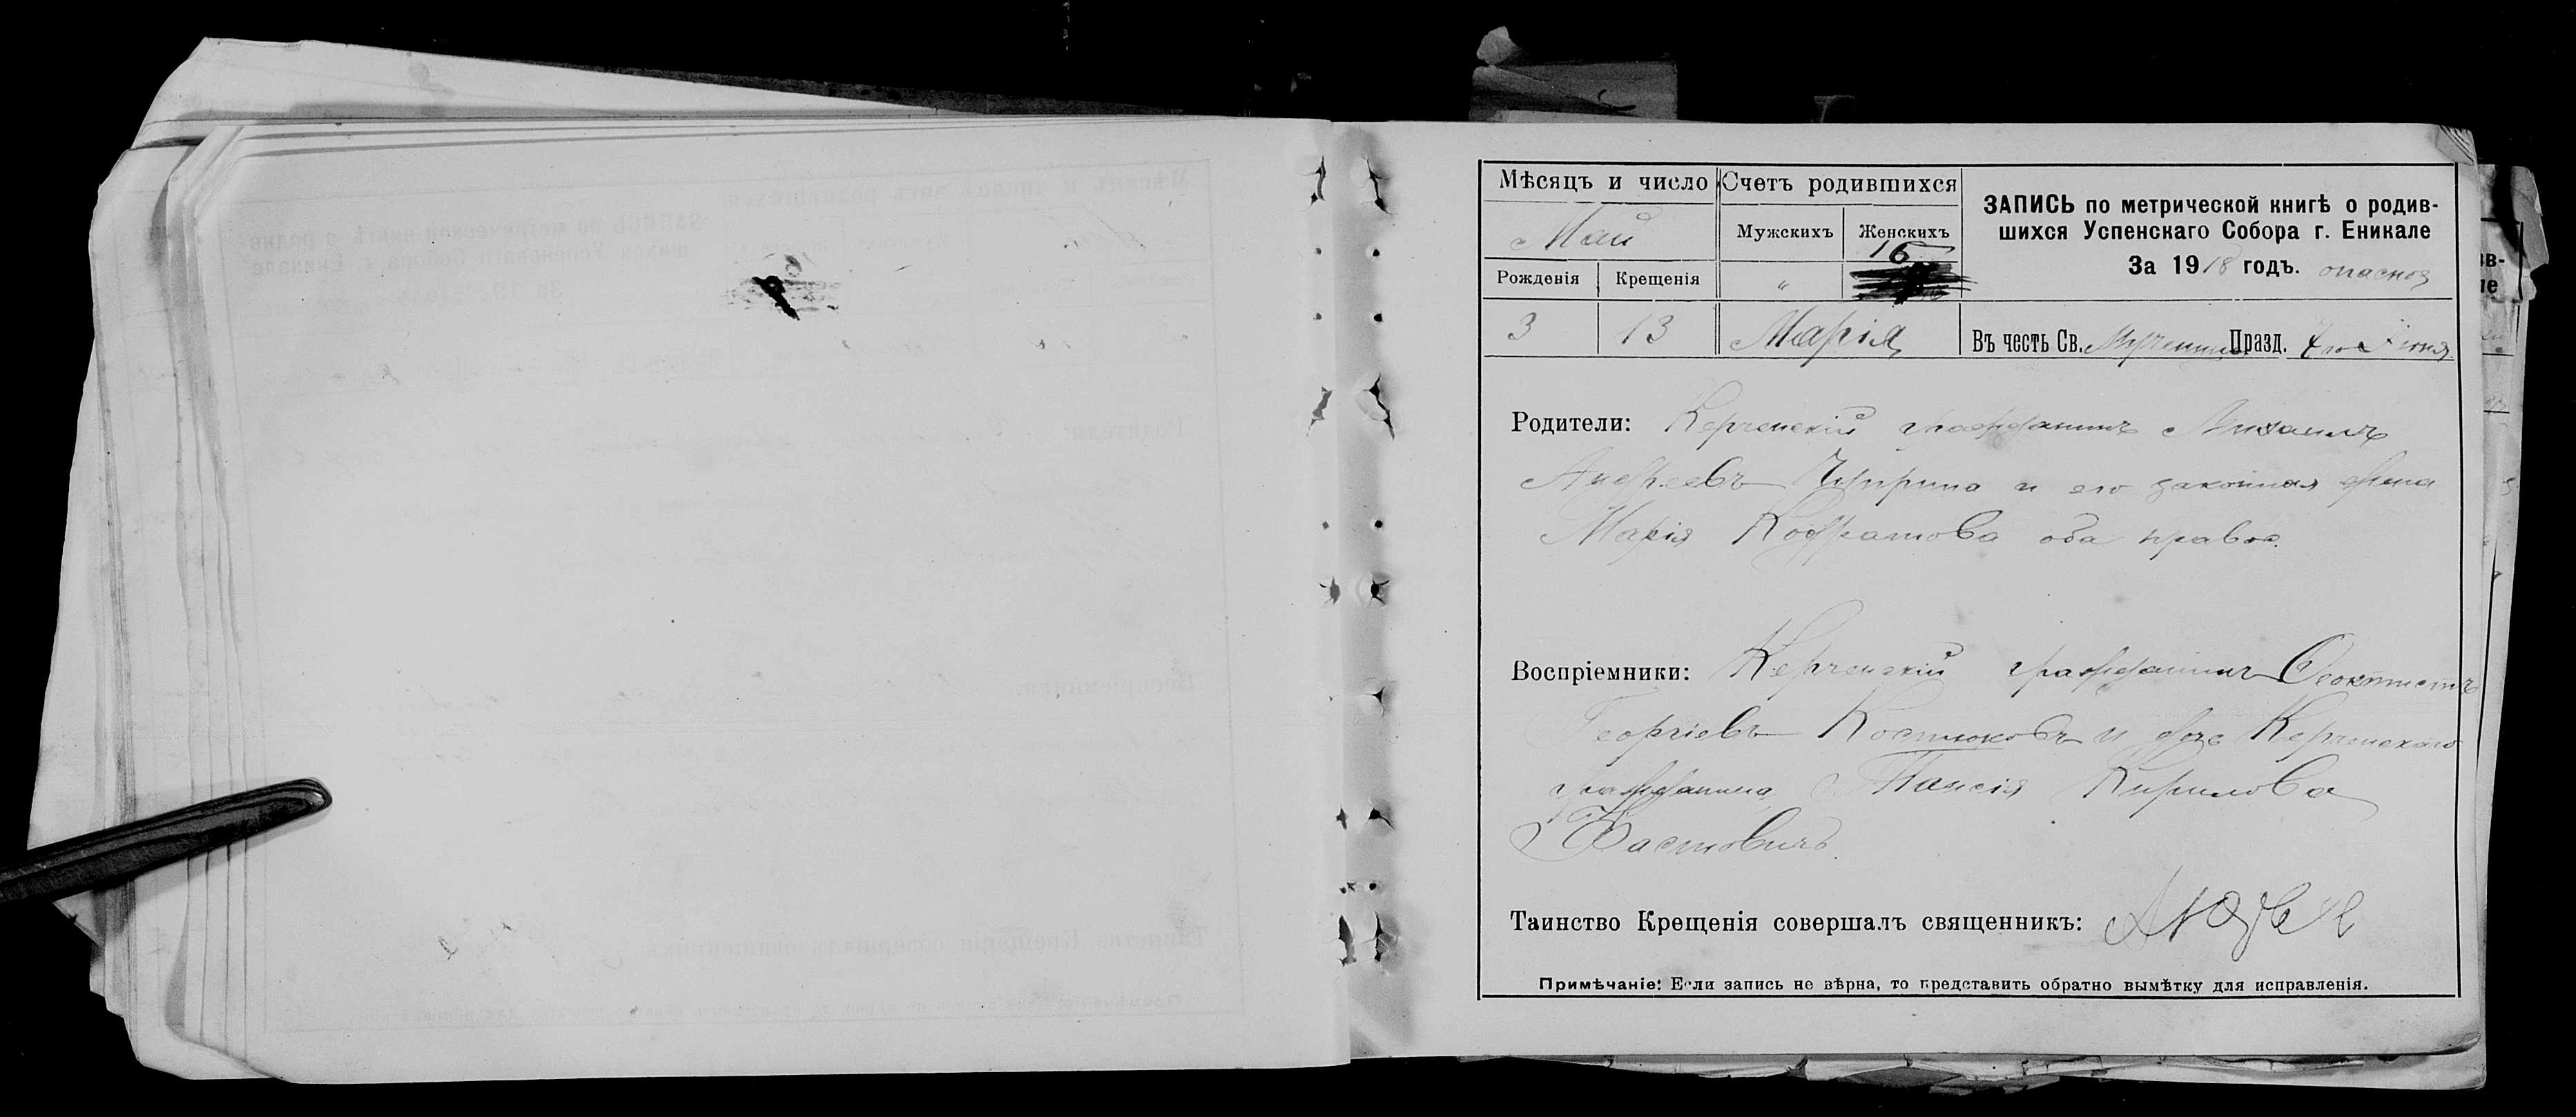 Мѣсяцъ и число
Счетъ родившихся
Май
Мужскихъ
Женскихъ
16
Рожденія
Крещенія
"
3
13
Марія
ЗАПИСЬ по метрической книгѣ о родив-
шихся Успенскаго Собора г. Еникале
За 1918 годъ.
Въ честь Св. Мученицы Празд. 7го Іюня
Родители: Керченскій гражданинъ Михаилъ
Андреевъ и его законная жена
Марія Кодратова оба правос.
Воспріемники: Керченскій гражданинъ Ѳеоктистъ
Георгіевъ Костюковъ и дочь Керченскаго
гражданина Таисія Кирилова
Таинство Крещенія совершалъ священникъ:
Примѣчаніе: Если запись не вѣрна, то представить обратно вымѣтку для исправленія.